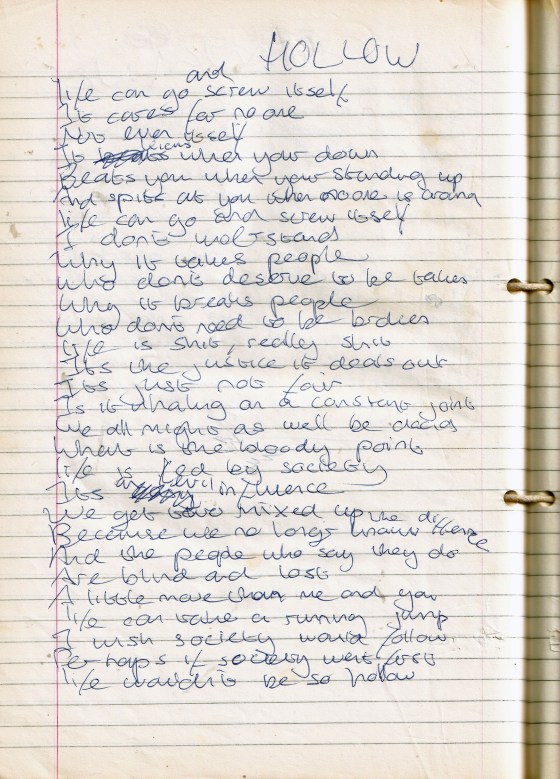 HOLLOW
life can go and screw itself
It cares for no one
Not even itself
It kicks when your down
Beats you when your standing up
And spits at you when noone is around
life can go and screw itself
I don't understand
Why it takes people
who don't deserve to be taken
Why it breaks people
who don't need to be broken
life is shit, really shit
Its the justice it deals out
Its just not fair
Is it inhaling on a constant joint
We all might as well be dead
What is the bloody point
life is fed by society
Its an evil influence
We get mixed up the difference
Because we no longer know
And the people who say they do
Are blind and lost
A little more than me and you
life can take a running jump
I wish society would follow
Perhaps if society went first
life wouldn't be so hollow